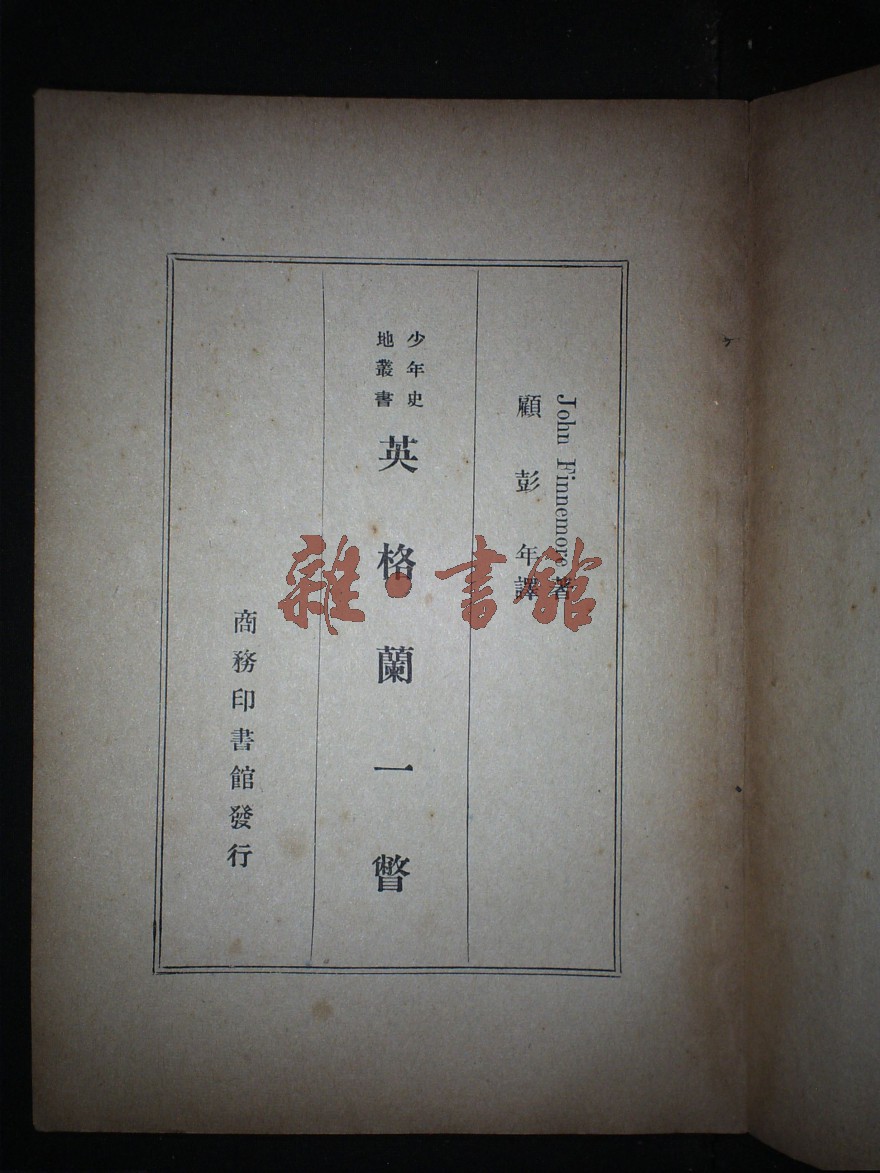 John Finnemore 著
顧彭年譯
少年史
地叢書
英格蘭一瞥
商務印書館發行
雜·書館